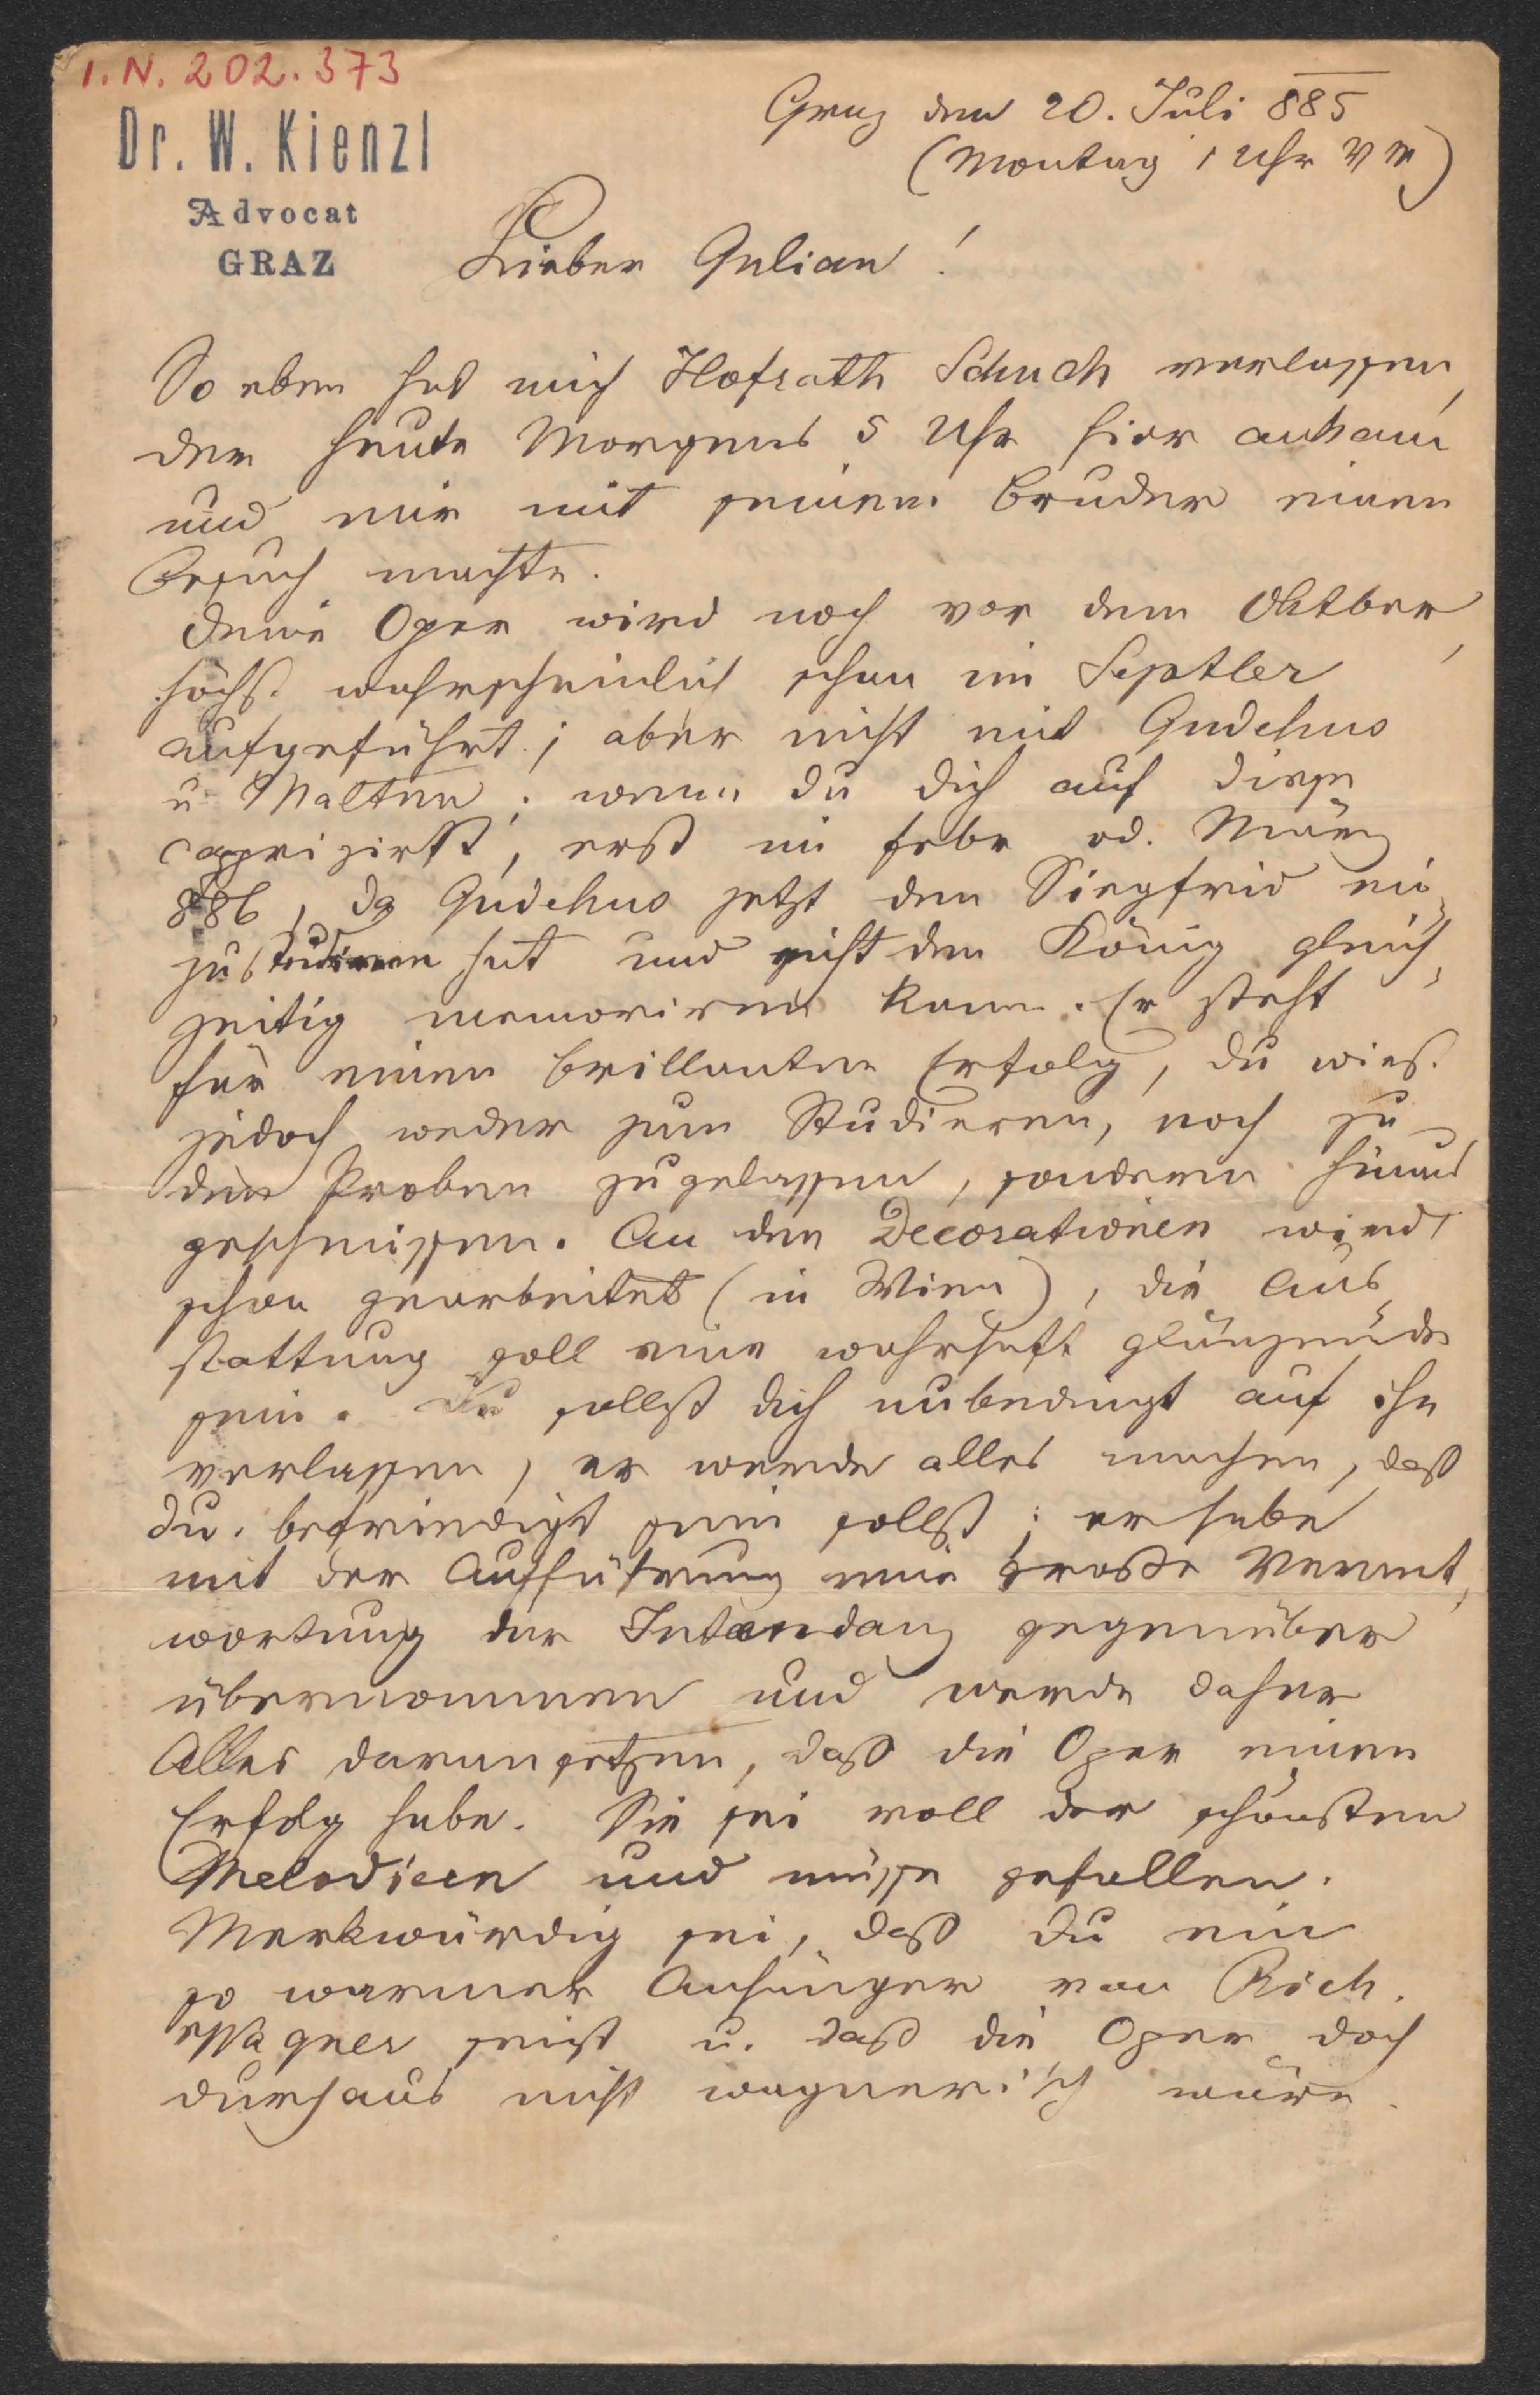 I.N. 202.373
Dr. W. Kienzl
Advocat
GRAZ
Graz den 20. Juli 885
(Montag 1 Uhr VM)
Lieber Gulian!
So eben hat mich Hofrath Schuch verlassen,
der heute Morgens 5 Uhr hier ankam
und mir mit seinem Bruder einen
Besuch machte.
Deine Oper wird noch vor dem Oktber,
höchst wahrscheinlich schon im Septber
aufgeführt; aber nicht mit Gudehus
u Malten; wenn du dich auf diese
caprizirst, erst im Febr od. März
886, da Gudehus jetzt den Siegfrid ein
zustudiren hat und nicht den König gleich
zeitig memoriren kann. Er steht
für einen brillanten Erfolg, du wirst
jedoch weder zum Studieren, noch zu
den Proben zugelassen, sondern hinaus
geschmissen. An den Decorationen wird
schon gearbeitet (in Wien), die Aus
stattung soll eine wahrhaft glänzende
sein. Du sollst dich unbedingt auf ihn
verlassen, er werde alles machen, daß
du befriedigt sein sollst; er habe
mit der Aufführung eine große Verant
wortung der Intendanz gegenüber
übernommen und werde daher
Alles daransetzen, daß die Oper einen
Erfolg habe. Sie sei voll der schönsten
Melodieen und müsse gefallen.
Merkwürdig sei, daß du ein
so warmer Anhänger von Rich.
Wagner seist u. daß die Oper doch
durchaus nicht wagnerisch wäre.